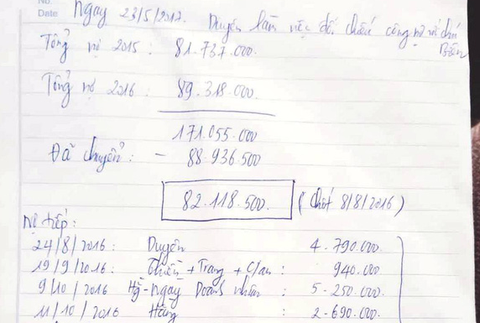 Date Ngày 23/5/2017. Duyên làm việc đối chiếu công nợ với chú
Tổng nợ 2015 : 81.737.000.
Tổng nợ 2016 : 89.318.000.
171.055.000
Đã chuyển : - 88.936.500
82.118.500. ( chốt 8/8/2016)
Nợ tiếp:
24/8/2016 : Duyên 4.790.000.
19/9/2016 : Thiên + Trang + C/an : 940.000.
9/10/2016 Hg - Ngày Doanh nhân : 5-250.000.
11/10/2016 Hằng : 2-690.000.